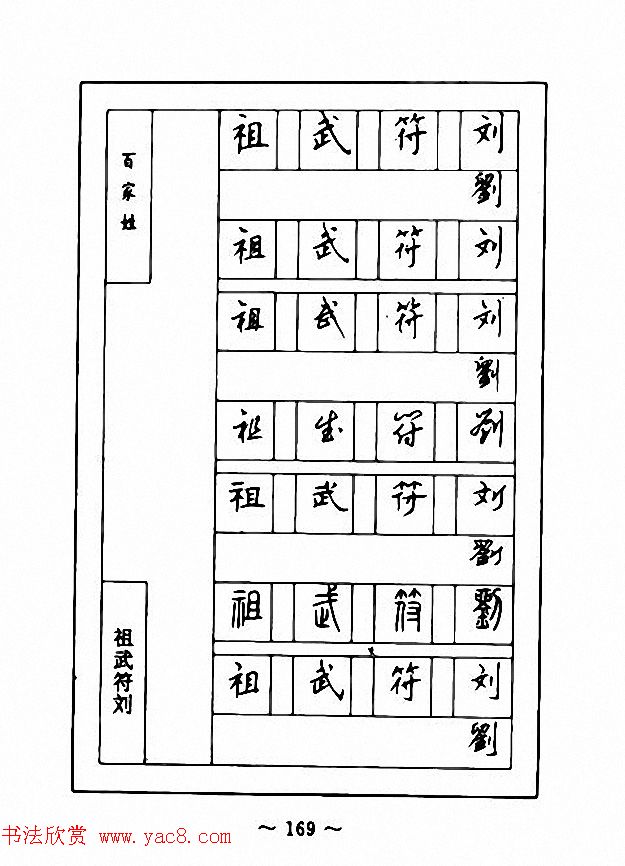 百家姓
祖 武 符 刘
劉
祖 武 符 刘
祖 武 符 刘
劉
祖 武 符 劉
祖 武 符 刘
劉
祖 武 符 劉
祖 武 符 刘
劉
祖武符刘
~ 169 ~
书法欣赏 www.yac8.com